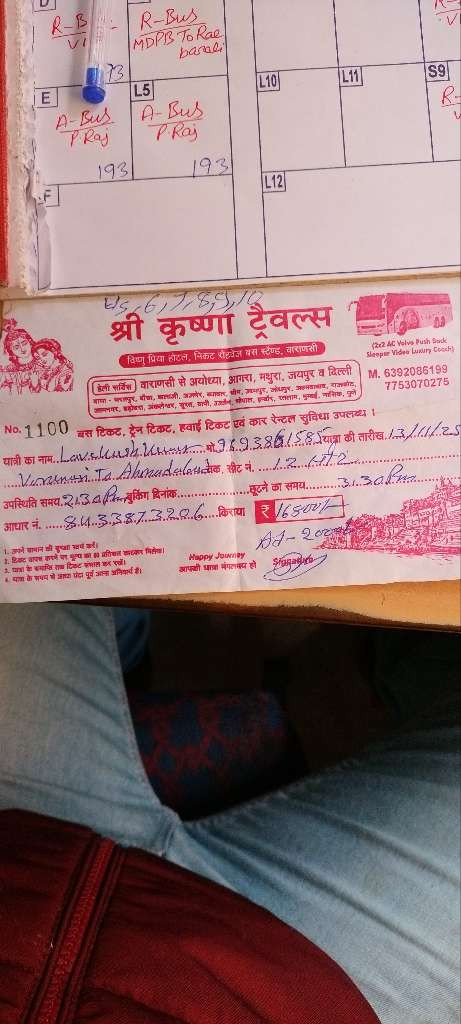 D
R-Bus
R-Bus
MDPB To Rae
bareli
73
E
L5
L10
L11
S9
A-Bus
P.Raj
193
A-Bus
P.Raj
193
F
L12
5, 6, 7, 8, 9, 10
श्री कृष्णा ट्रैवल्स
(2x2 AC Volvo Push Back
Sleeper Video Luxury Coach)
विष्णु प्रिया होटल, निकट रोडवेज बस स्टैण्ड, वाराणसी
डेली सर्विस वाराणसी से अयोध्या, आगरा, मथुरा, जयपुर व दिल्ली
M. 6392086199
7753070275
No. 1100 बस टिकट, ट्रेन टिकट, हवाई टिकट एवं कार रेन्टल सुविधा उपलब्ध।
यात्री का नाम Lavekush मो 9693861585 यात्रा की तारीख 13/11/25
Varanasi To Ahmadabad तक, सीट नं. 12
उपस्थिति समय 2:30 Pm बुकिंग दिनांक छूटने का समय 3:30 Pm
आधार नं. 8433873206 किराया ₹ 16800/-
Ad-2000
1. अपने सामान की सुरक्षा स्वयं करें।
3. यात्रा के समाप्ति तक टिकट संभाल कर रखें।
4. यात्रा के समय से आधा घंटा पूर्व आना अनिवार्य है।
Happy Journey
आपकी यात्रा मंगलमय हो
Signature